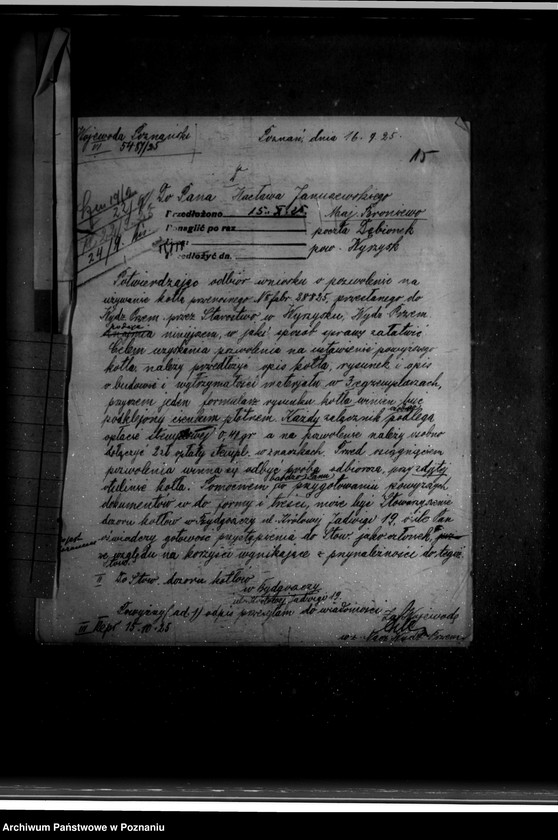 Wojewoda Poznański
VI 5451/25
Poznań, dnia 16.9.25.
15
I
Do Pana Wacława Januszewskiego
Przedłożono 15. X. 25.
Maj. Broniewo
Ponaglić po raz
poczta Dąbionek
edłożyć dn.
pow. Wyrzysk
24/9.
Potwierdzając odbiór wniosku o pozwolenie na
używanie kotła parowego No fabr. 28825, przesłanego do
Wydz. Przem. przez Starostwo w Wyrzysku, Wydz. Przem.
podaje
niniejszem, w jaki sposób sprawę załatwić
Celem uzyskania pozwolenia na ustawienie powyższego
kotła należy przedłożyć opis kotła, rysunek i opis
o budowie i wytrzymałości materjału w 3 egzemplarzach,
przyczem jeden formularz rysunku kotła winien być
podklejony cienkim płótnem. Każdy załącznik podlega
opłacie stemplowej 0,40 gr a na pozwolenie należy osobno
dołączyć 2 zł opłaty stempl. w znaczkach. Przed osiągnięciem
pozwolenia winna się odbyć próba odbiorcza, przy
kotła. Pomocnem po przygotowaniu powyższych
dokumentów co do formy i treści, może być Stowarzyszenie
dozoru kotłów w Bydgoszczy ul. Królowej Jadwigi 19, o ile Pan
oświadczy gotowość przystąpienia do Stow. jako członek,
ze względu na korzyści wynikające z przynależności do tegoż
Stow.
II Do Stow. dozoru kotłów
w Bydgoszczy
ul. Królowej Jadwigi 19.
Powyższy ad 1) odpis przesyłam do wiadomości
Za Wojewodę
III Repr. 15.10.25
Archiwum Państwowe w Poznaniu